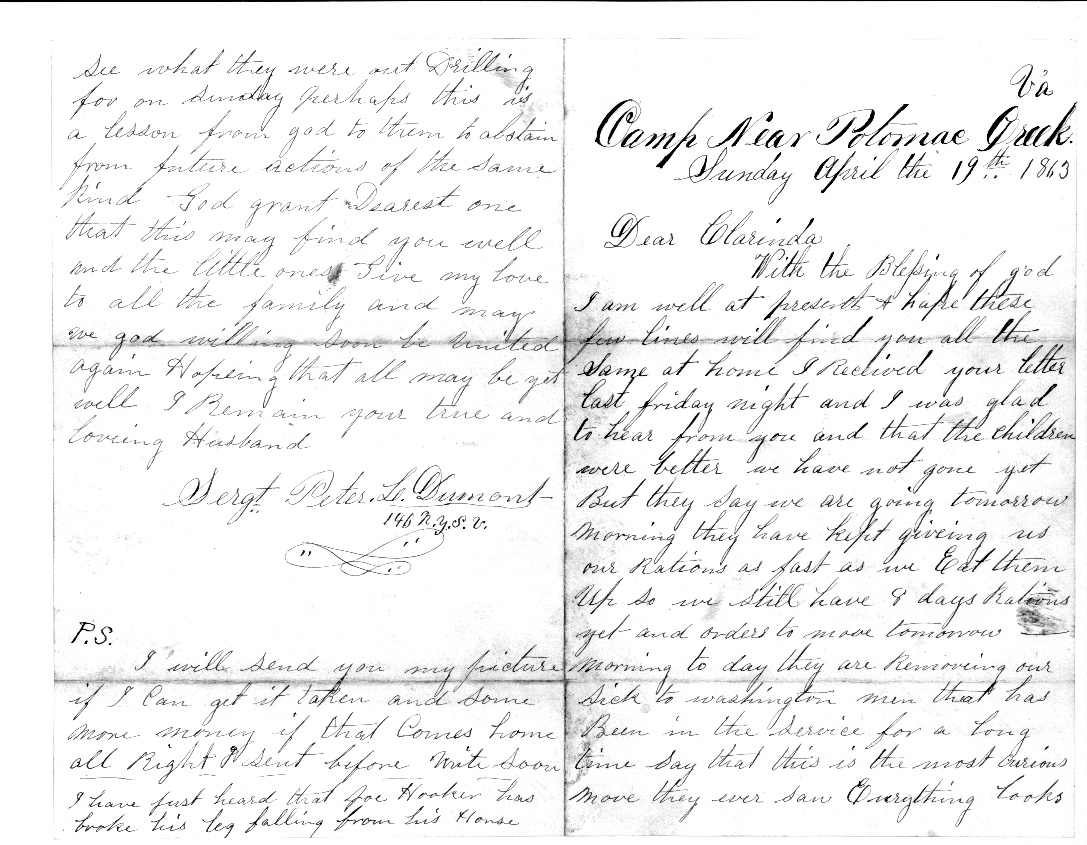 Va
Camp Near Potomac Creek.
Sunday April the 19th. 1863
Dear Clarinda
With the Blessing of god
I am well at present & hope these
few lines will find you all the
Same at home I Recieved your letter
last friday night and I was glad
to hear from you and that the children
were better we have not gone yet
But they say we are going tomorrow
morning they have kept giveing us
our Rations as fast as we Eat them
Up so we still have 8 days Rations
yet and orders to move tomorrow
morning to day they are Removeing our
sick to washington men that has
Been in the service for a long
time say that this is the most curious
move they ever saw Everything looks
see what they were out Drilling
for on sunday perhaps this is
a lesson from god to them to abstain
from future actions of the same
Kind God grant Dearest one
that this may find you well
and the little ones Give my love
to all the family and may
we god willing soon be United
again Hopeing that all may be yet
well I Remain your true and
loveing Husband
Sergt. Peter. L. Dumont
146 N.Y.S.V.
P.S.
I will send you my picture
if I can get it taken and some
more money if that Comes home
all Right I sent before Write soon
I have just heard that Joe Hooker has
broke his leg falling from his Horse